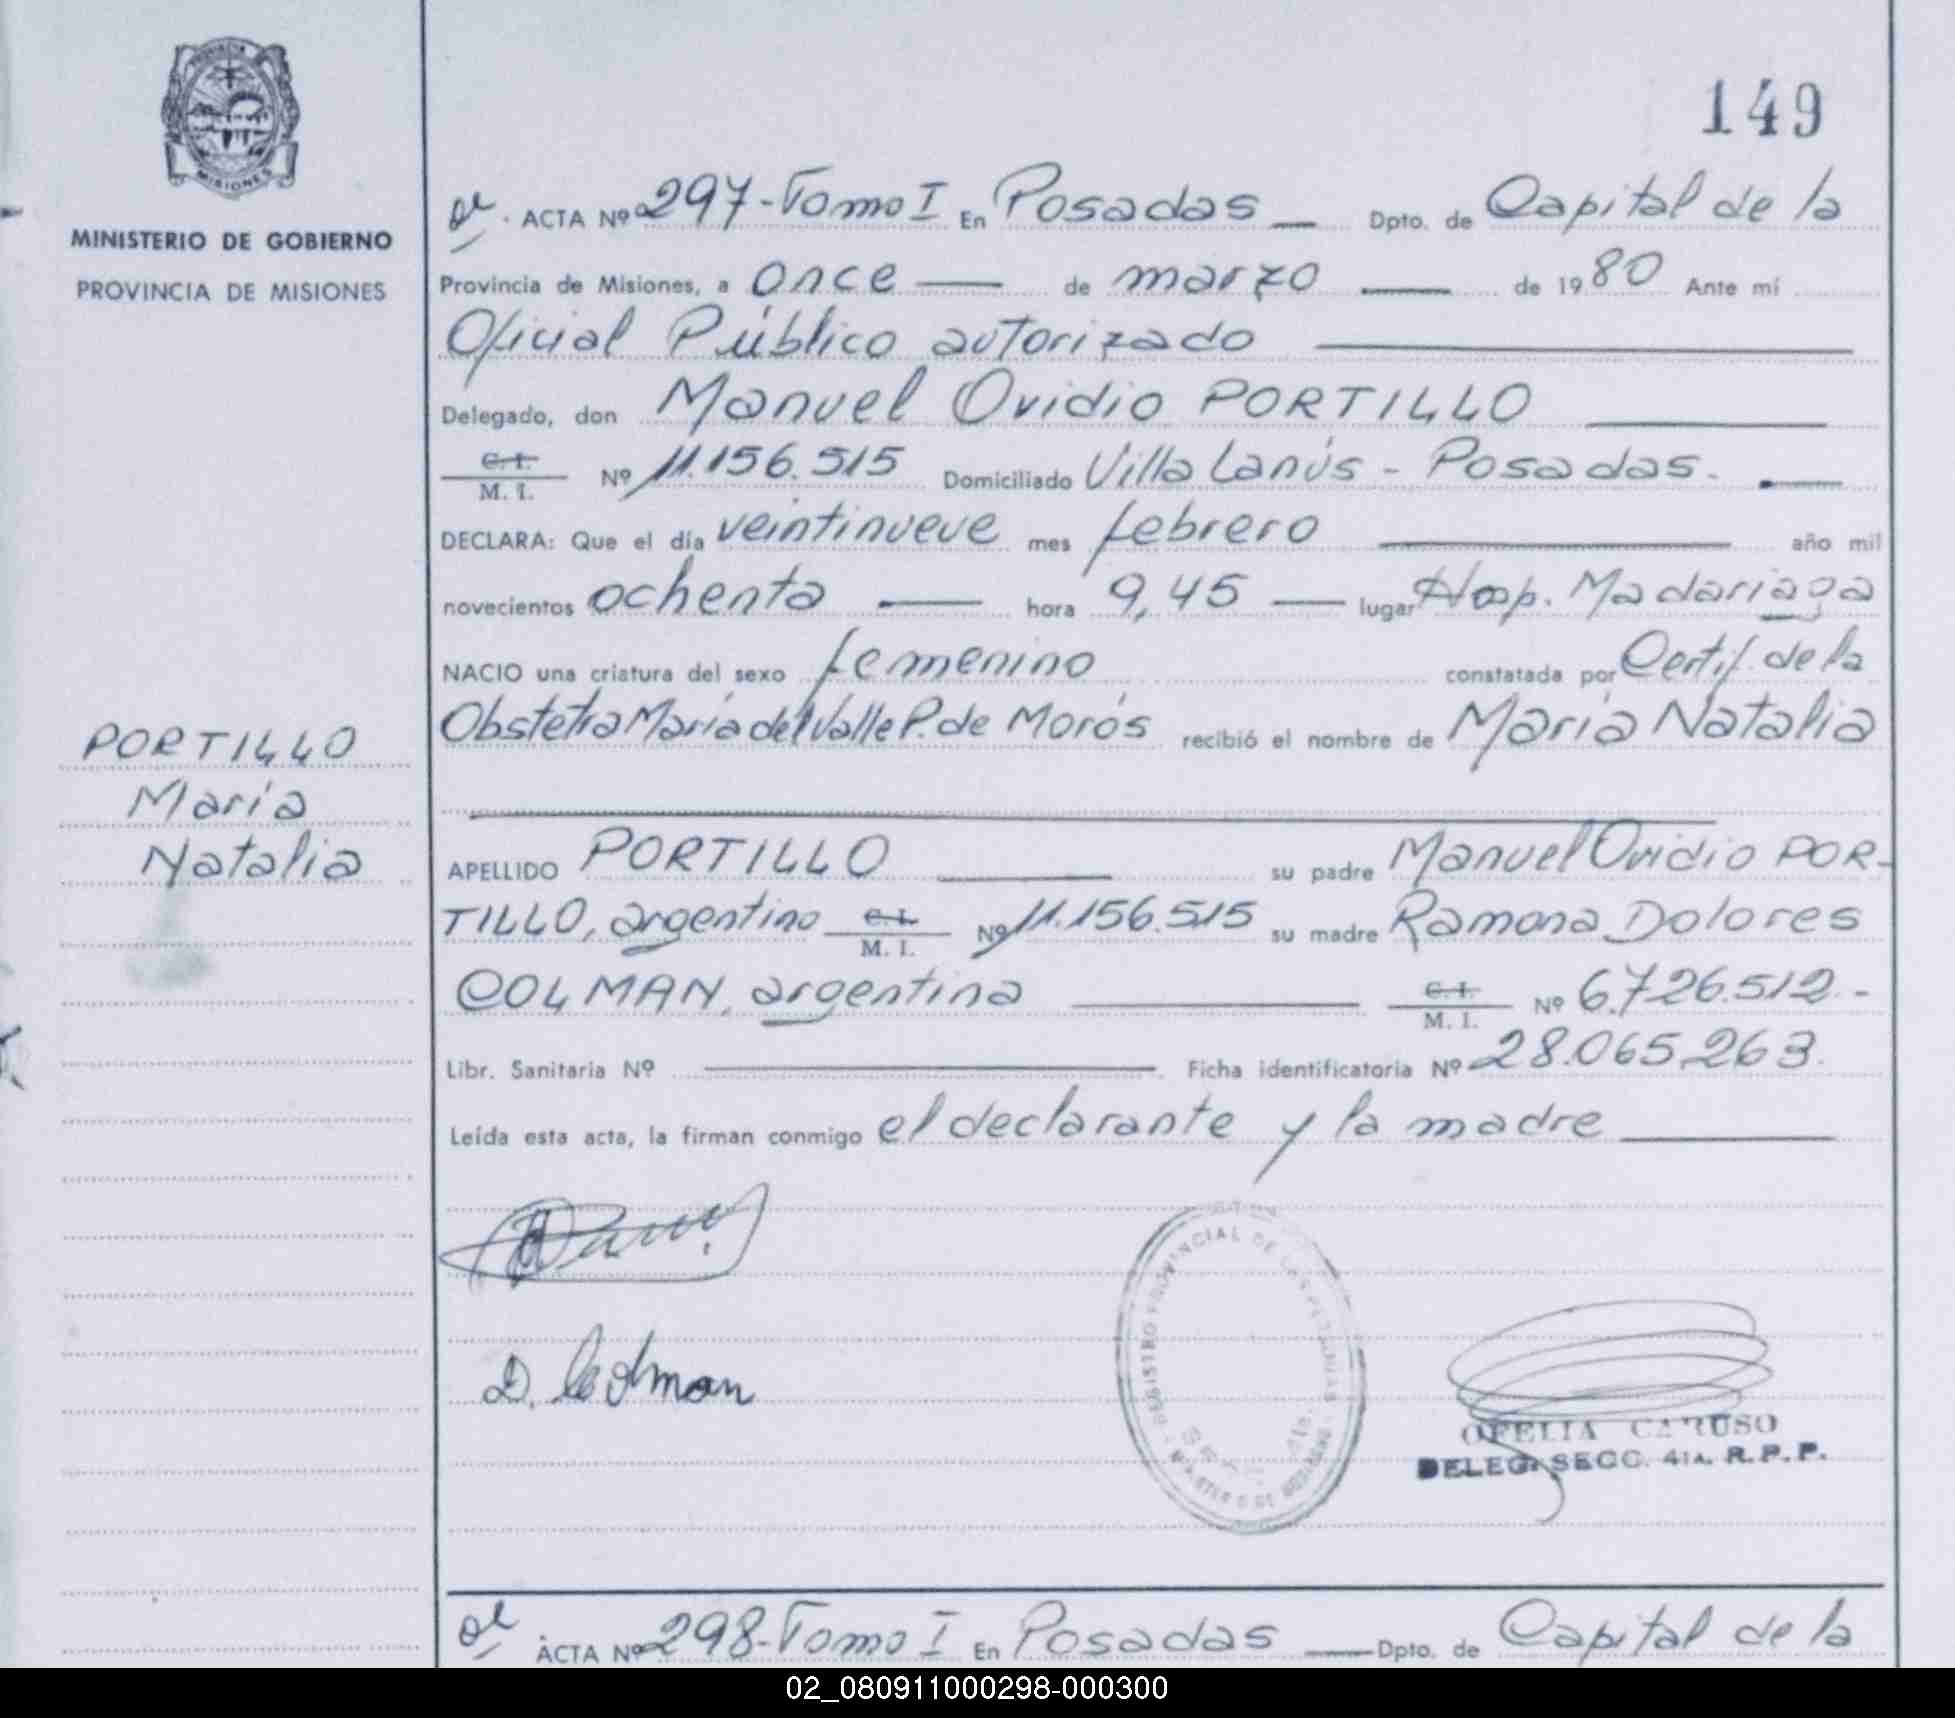 149
MISIONES
MINISTERIO DE GOBIERNO
PROVINCIA DE MISIONES
ACTA Nº 297-Tomo I En Posadas Dpto. de Capital de la
Provincia de Misiones, a once de marzo de 1980 Ante mí
Oficial Público autorizado
Delegado, don Manuel Ovidio PORTILLO
C.I. M. I. Nº 11.156.515 Domiciliado Villa Lanús - Posadas.
DECLARA: Que el día veintinueve mes febrero año mil
novecientos ochenta hora 9,45 lugar Hosp. Madariaga
NACIO una criatura del sexo femenino constatada por Certif. de la
Obstetra María del Valle P. de Morós recibió el nombre de María Natalia
PORTILLO
María
Natalia
APELLIDO PORTILLO su padre Manuel Ovidio POR-
TILLO, argentino C.I. M. I. Nº 11.156.515 su madre Ramona Dolores
COLMAN, argentina C.I. M. I. Nº 6.726.512.-
Libr. Sanitaria Nº Ficha identificatoria Nº 28.065.263.
Leída esta acta, la firman conmigo el declarante y la madre
D. Colman
REGISTRO PROVINCIAL DE LAS PERSONAS
OFELIA CARUSO
DELEG. SECC. 41A. R.P.P.
ACTA Nº 298-Tomo I En Posadas Dpto. de Capital de la
02_080911000298-000300